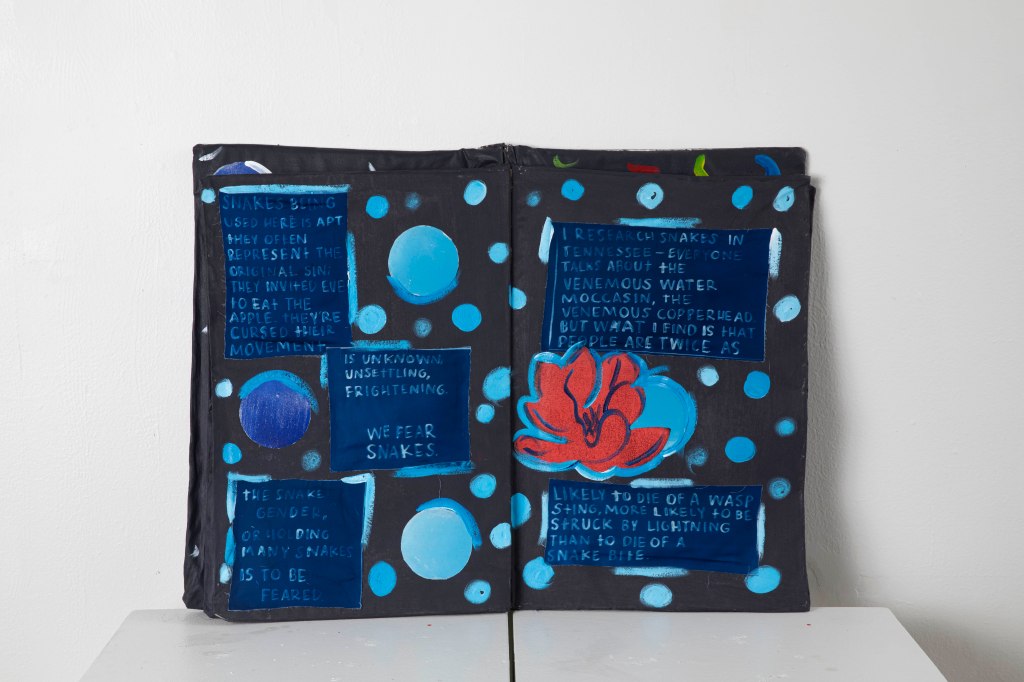 SNAKES BEING
USED HERE IS APT
THEY OFTEN
REPRESENT THE
ORIGINAL SIN;
THEY INVITED EVE
TO EAT THE
APPLE. THEY'RE
CURSED THEIR
MOVEMENT
IS UNKNOWN.
UNSETTLING,
FRIGHTENING.
WE FEAR
SNAKES.
THE SNAKE
GENDER,
OR HOLDING
MANY SNAKES
IS TO BE
FEARED
I RESEARCH SNAKES IN
TENNESSEE – EVERYONE
TALKS ABOUT THE
VENEMOUS WATER
MOCCASIN, THE
VENEMOUS COPPERHEAD
BUT WHAT I FIND IS THAT
PEOPLE ARE TWICE AS
LIKELY TO DIE OF A WASP
STING, MORE LIKELY TO BE
STRUCK BY LIGHTNING
THAN TO DIE OF A
SNAKE BITE.